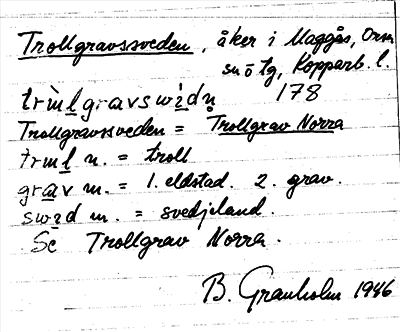 Trollgravssveden, åker i Maggås, Orsa
sn ö tg, Kopparb. l.
trìu̯lgravswìdn̥ 178
Trollgravssveden = Trollgrav Norra
trul n. = troll
grav m. = 1. eldstad. 2. grav.
swid m. = svedjeland.
Se Trollgrav Norra.
B. Granholm 1946